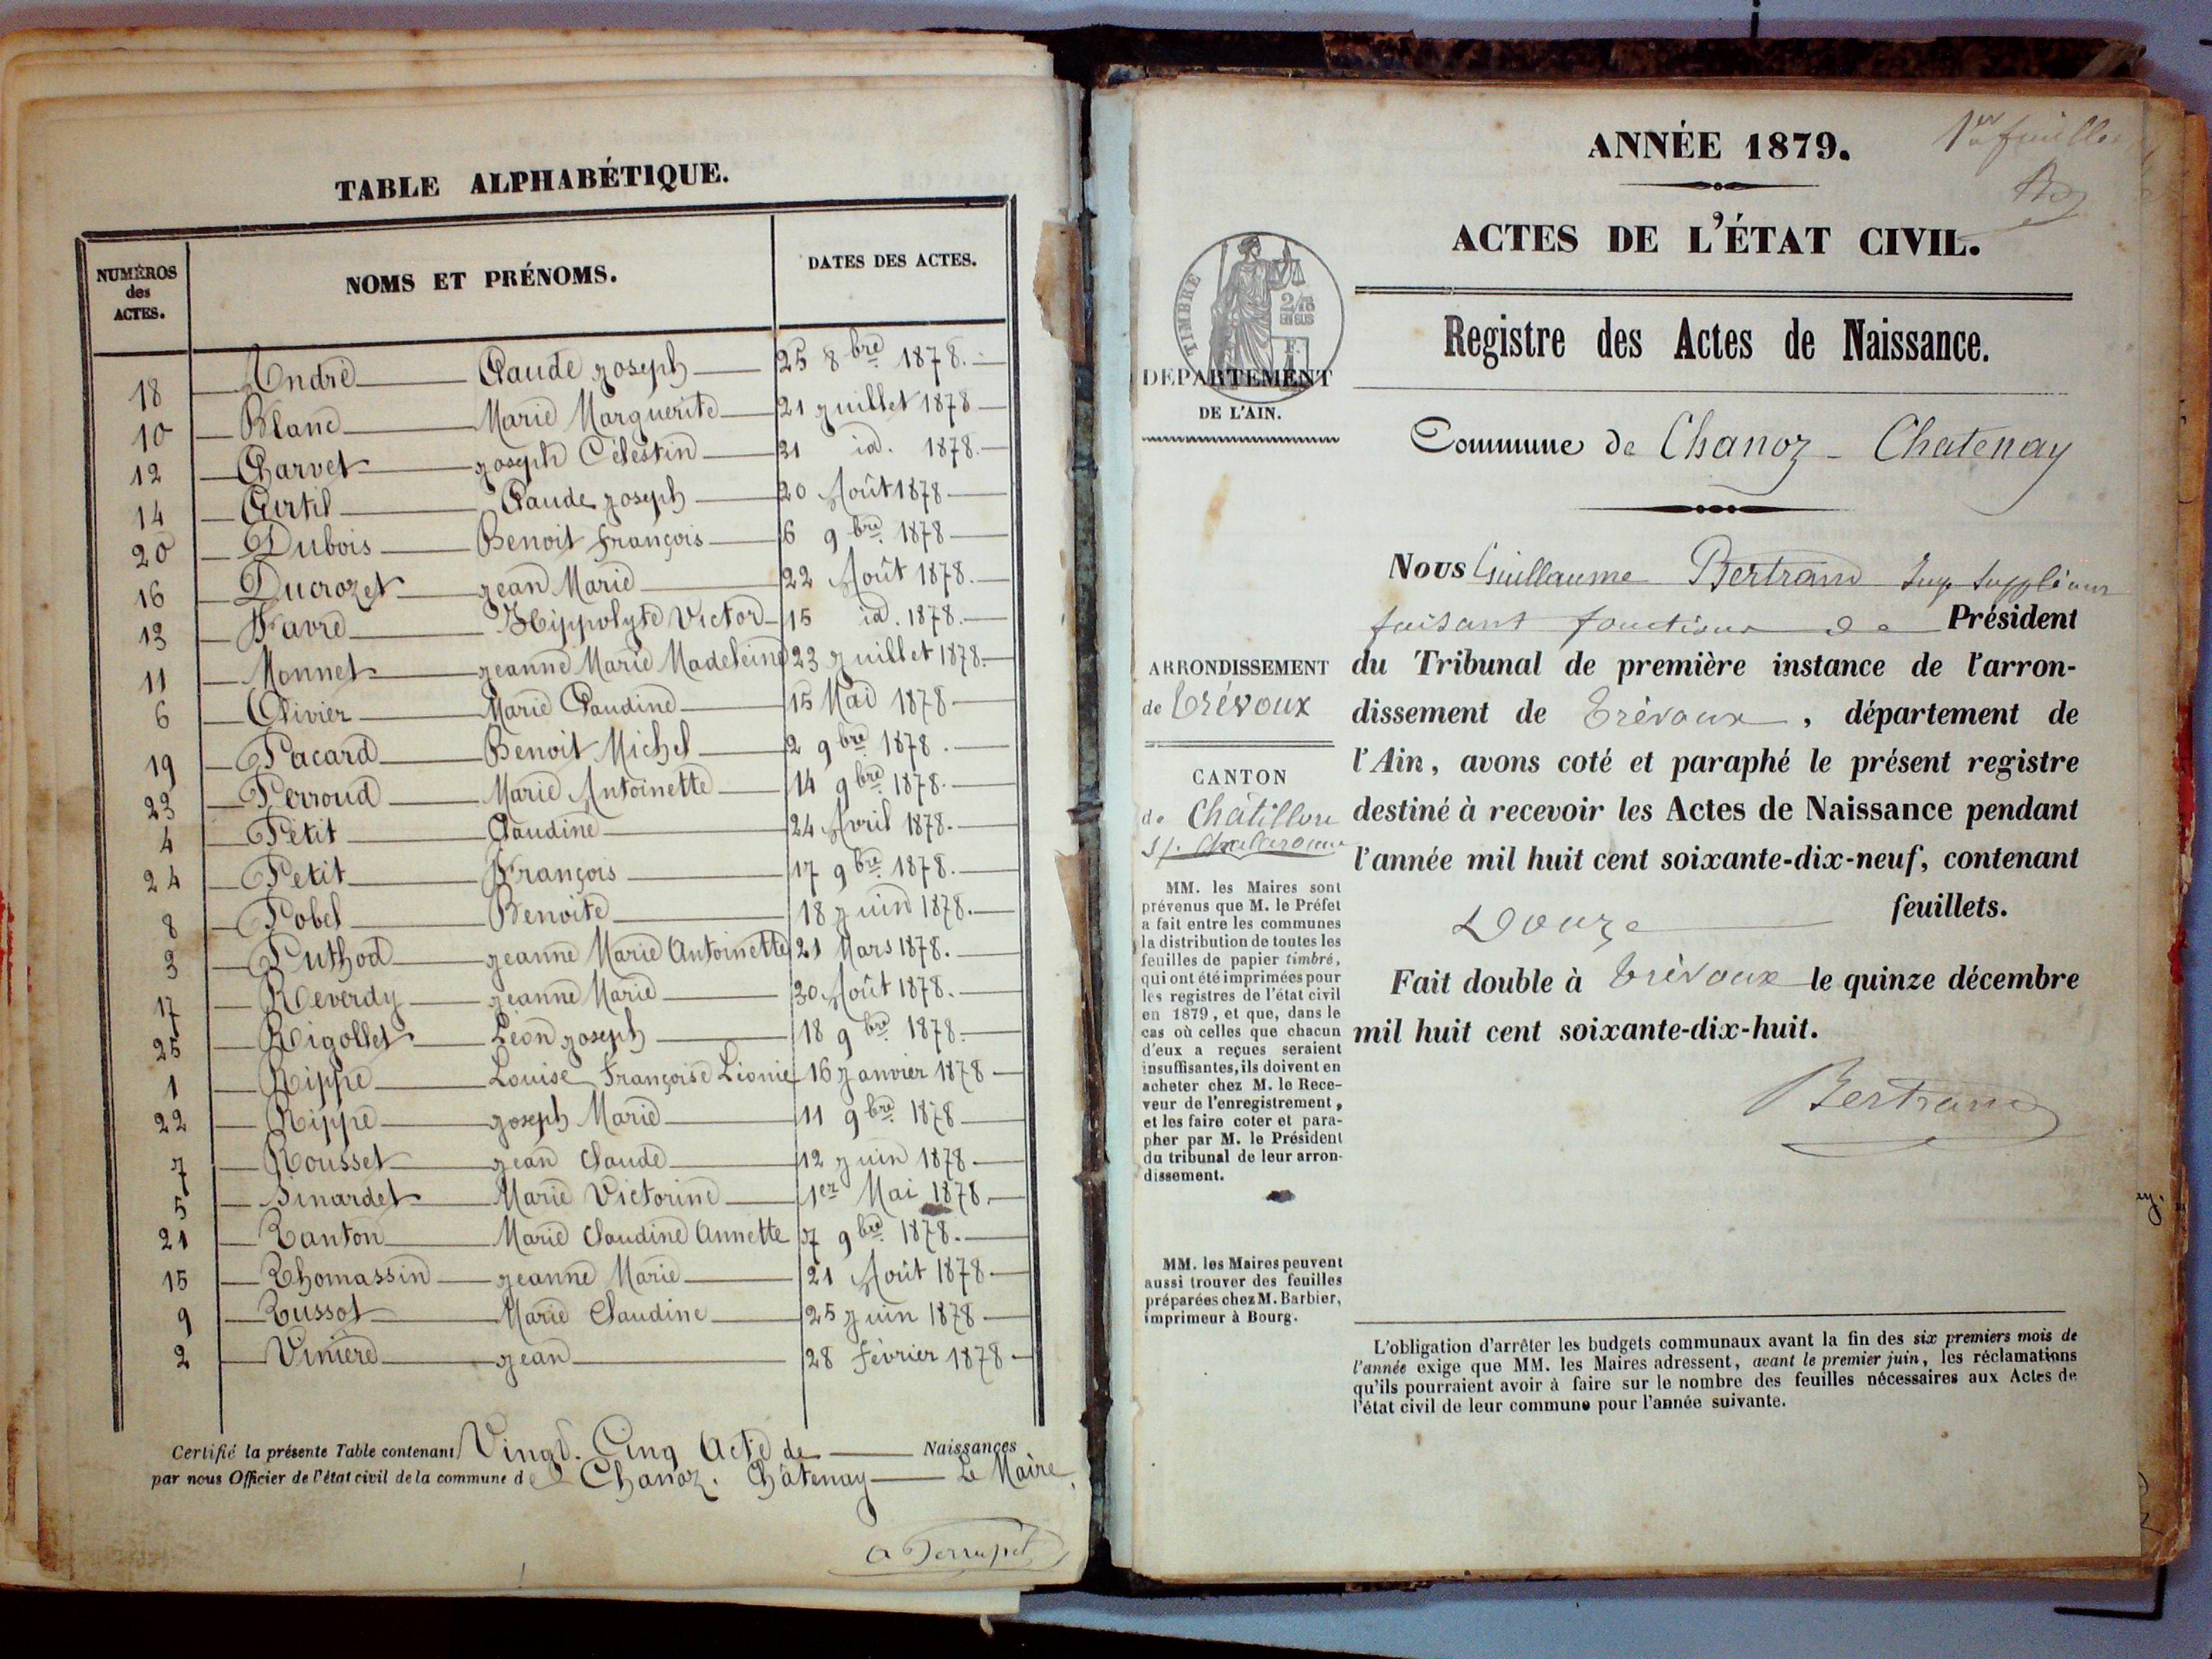 TABLE ALPHABÉTIQUE.
NUMÉROS des ACTES. NOMS ET PRÉNOMS. DATES DES ACTES.
18 André Claude Joseph 25 8bre 1878.
10 Blanc Marie Marguerite 21 Juillet 1878
12 Charvet Joseph Célestin 31 id. 1878.
14 Curtil Claude Joseph 20 Août 1878
20 Dubois Benoit François 6 9bre 1878
16 Ducrozet Jean Marie 22 Août 1878.
13 Favre Hippolyte Victor 15 id. 1878.
11 Monnet Jeanne Marie Madeleine 23 Juillet 1878.
6 Olivier Marie Claudine 15 Mai 1878
19 Pacard Benoit Michel 2 9bre 1878.
23 Perroud Marie Antoinette 14 9bre 1878.
4 Petit Claudine 24 Avril 1878.
24 Petit François 17 9bre 1878.
8 Pobel Benoite 18 Juin 1878.
3 Puthod Jeanne Marie Antoinette 21 Mars 1878.
17 Reverdy Jeanne Marie 30 Août 1878.
25 Rigollet Léon Joseph 18 9bre 1878.
1 Rippe Louise Françoise Léonie 16 Janvier 1878
22 Rippe Joseph Marie 11 9bre 1878
7 Rousset Jean Claude 12 Juin 1878
5 Sinardet Marie Victorine 1er Mai 1878.
21 Tanton Marie Claudine Annette 7 9bre 1878.
15 Thomassin Jeanne Marie 21 Août 1878
9 Tussot Marie Claudine 25 Juin 1878
2 Vinière Jean 28 Février 1878
Certifié la présente Table contenant Vingt-Cinq Acte de Naissances
par nous Officier de l'état civil de la commune de Chanoz-Châtenay Le Maire,
1er feuillet
ANNÉE 1879.
ACTES DE L'ÉTAT CIVIL.
TIMBRE
2/10 EN SUS
DEPARTEMENT
DE L'AIN.
Registre des Actes de Naissance.
Commune de Chanoz-Chatenay
Nous Guillaume Bertrand Juge Suppléant
faisant fonctions de Président
du Tribunal de première instance de l'arron-
dissement de Trévoux, département de
l'Ain, avons coté et paraphé le présent registre
destiné à recevoir les Actes de Naissance pendant
l'année mil huit cent soixante-dix-neuf, contenant
Douze feuillets.
Fait double à Trévoux le quinze décembre
mil huit cent soixante-dix-huit.
Bertrand
ARRONDISSEMENT
de Trévoux
CANTON
de Châtillon
s/. Chalaronne
MM. les Maires sont
prévenus que M. le Préfet
a fait entre les communes
la distribution de toutes les
feuilles de papier timbré,
qui ont été imprimées pour
les registres de l'état civil
en 1879, et que, dans le
cas où celles que chacun
d'eux a reçues seraient
insuffisantes, ils doivent en
acheter chez M. le Rece-
veur de l'enregistrement,
et les faire coter et para-
pher par M. le Président
du tribunal de leur arron-
dissement.
MM. les Maires peuvent
aussi trouver des feuilles
préparées chez M. Barbier,
imprimeur à Bourg.
L'obligation d'arrêter les budgets communaux avant la fin des six premiers mois de
l'année exige que MM. les Maires adressent, avant le premier juin, les réclamations
qu'ils pourraient avoir à faire sur le nombre des feuilles nécessaires aux Actes de
l'état civil de leur commune pour l'année suivante.